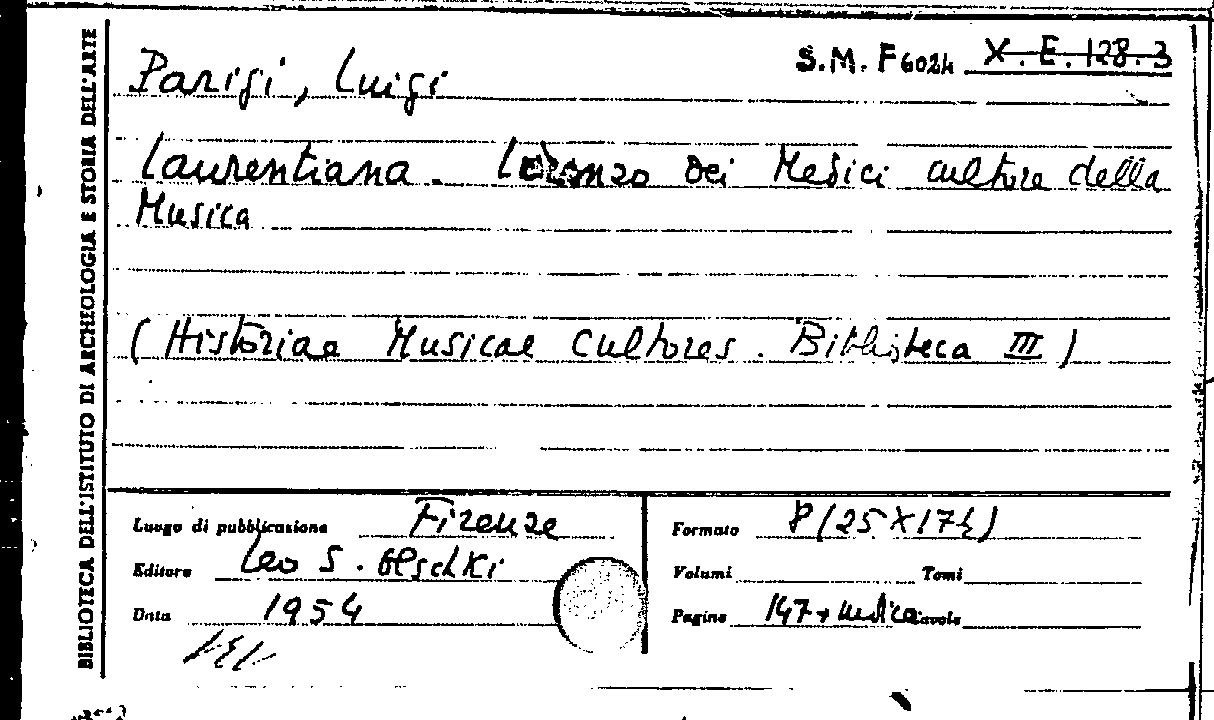 BIBLIOTECA DELL'ISTITUTO DI ARCHEOLOGIA E STORIA DELL'ARTE
S.M. F6024 X.E.128.3
Parigi, Luigi
Laurentiana. Lorenzo dei Medici cultore della
Musica
(Historiae Musicae Cultores. Biblioteca III)
Luogo di pubblicazione Firenze
Editore Leo S. Olschki
Data 1954
Formato 8 (25X17½)
Volumi Tomi
Pagine 147+indice Tavole